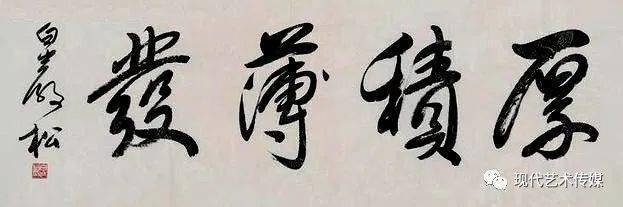 厚積薄發
松
现代艺术传媒